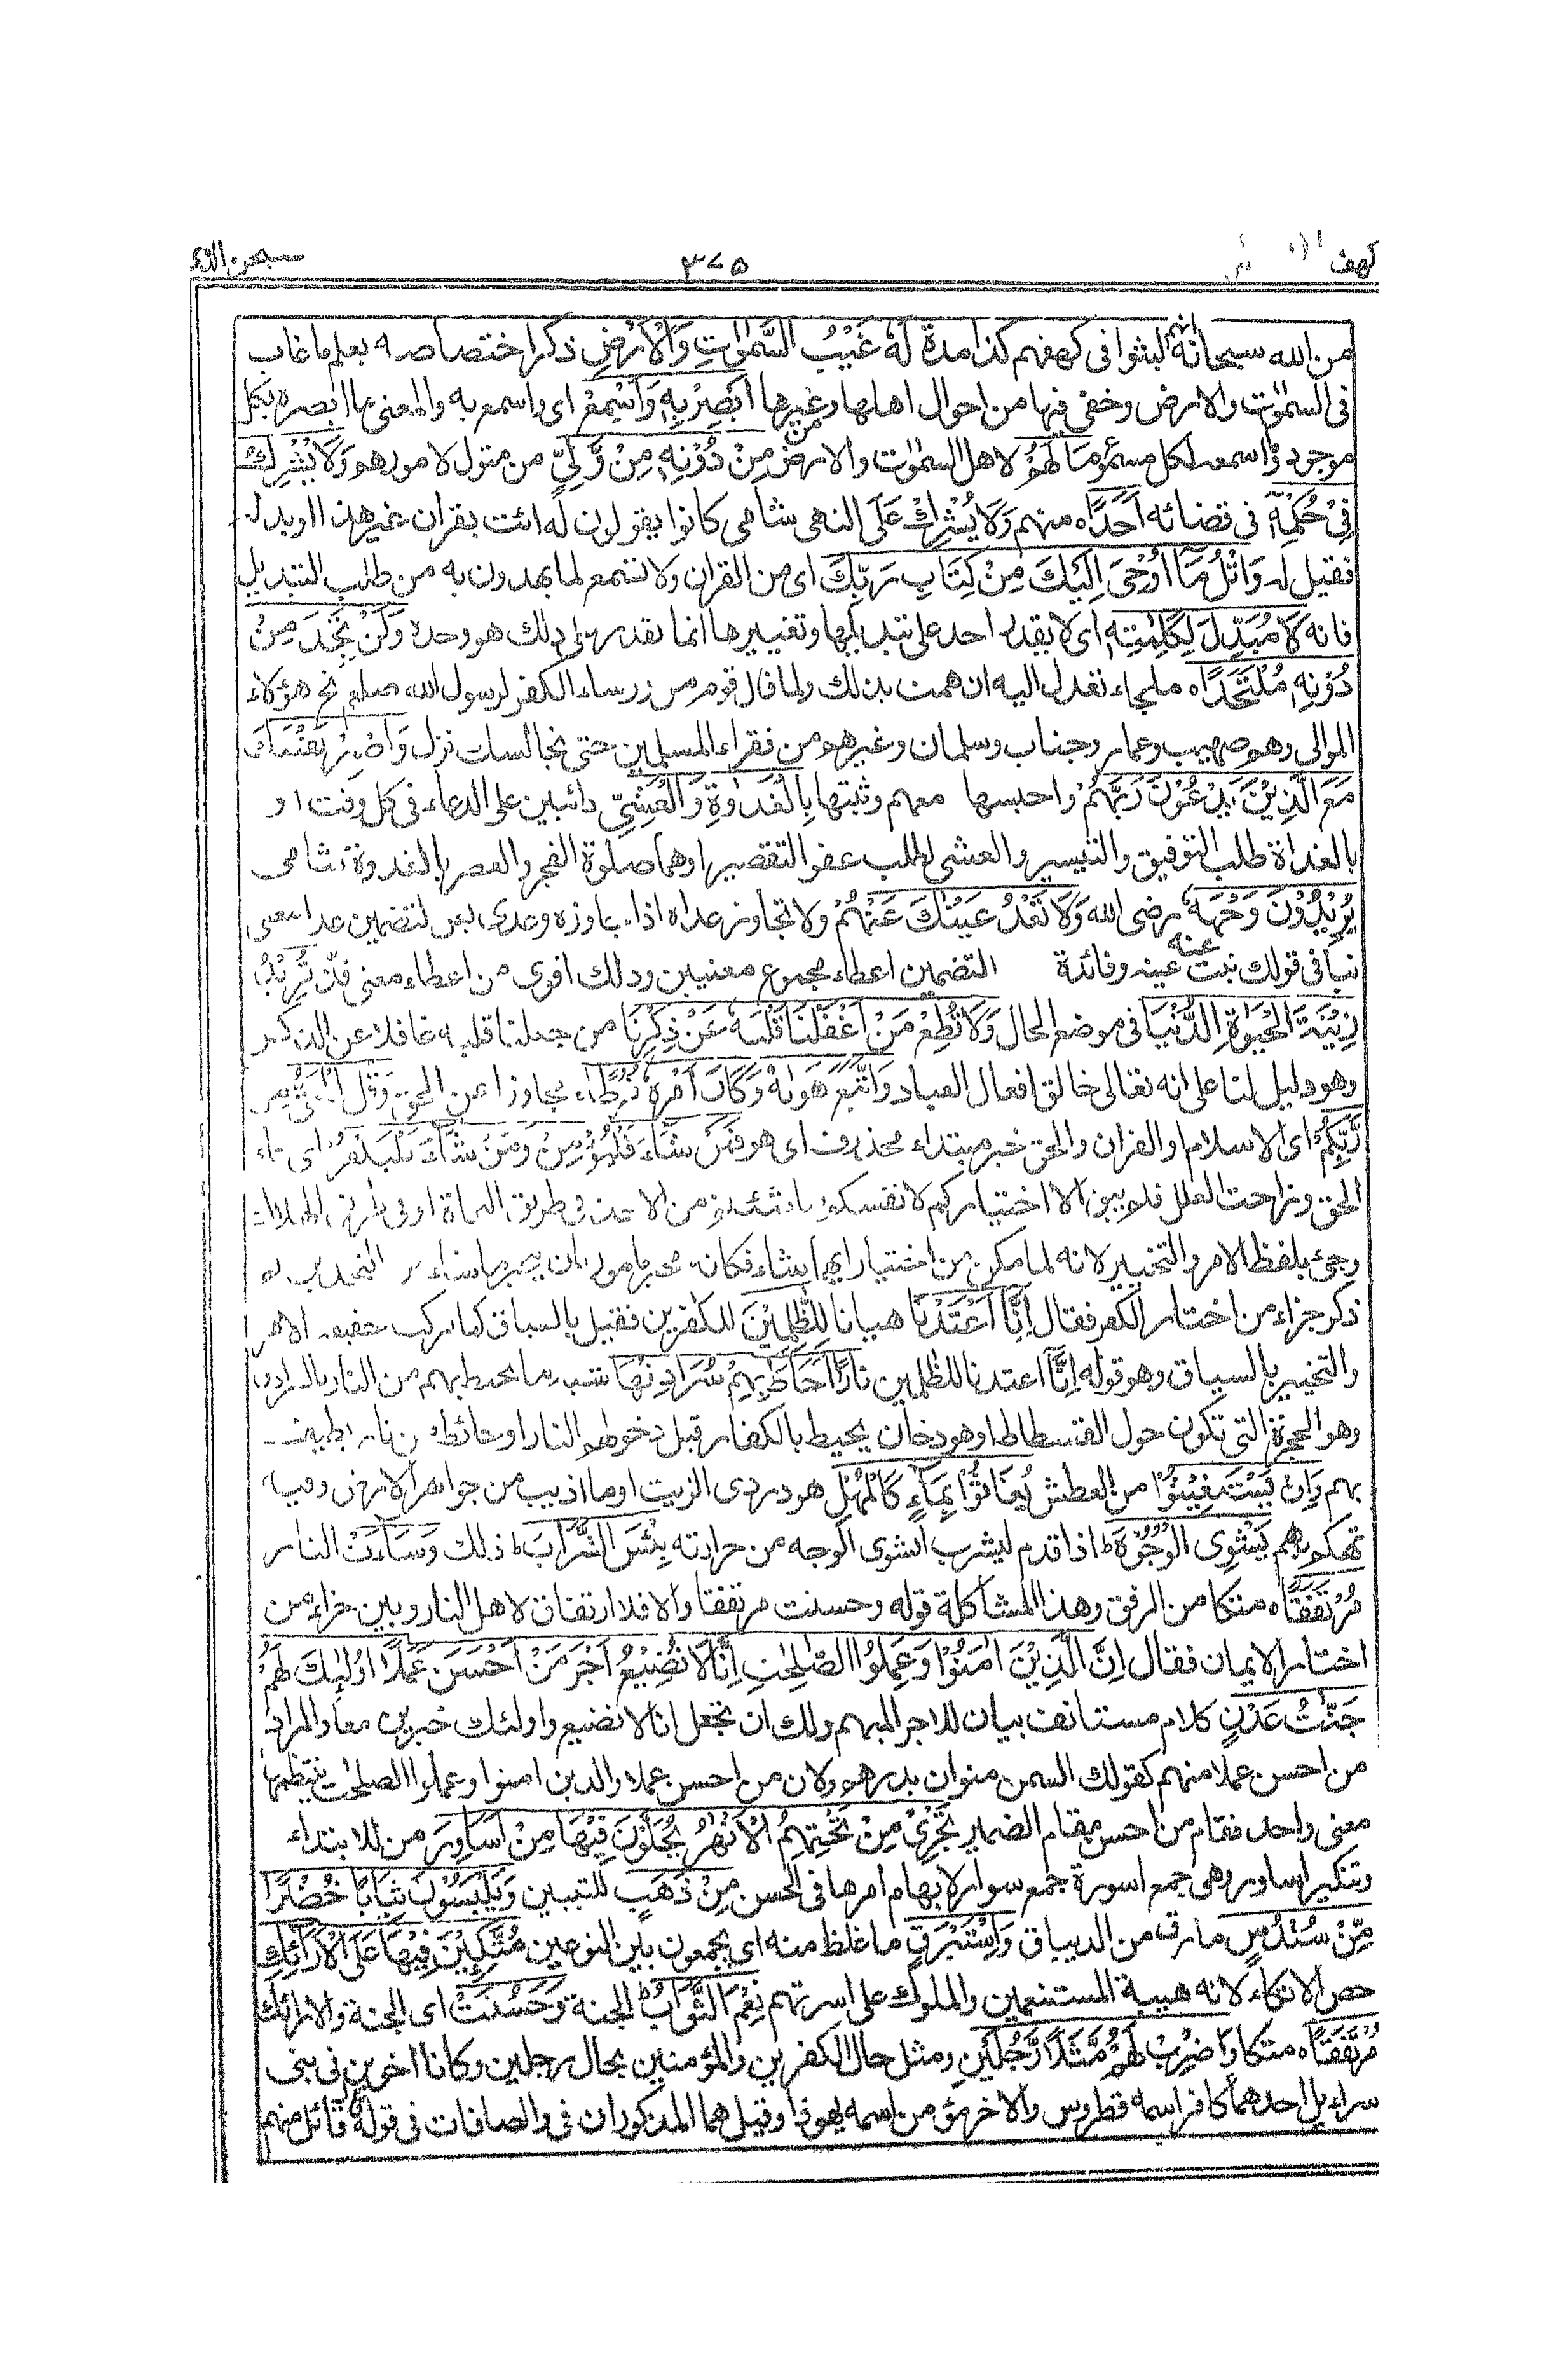 كهف
٣٧٥
سبحن الذي
من الله سبحانه انهم لبثوا فى كهفهم كذا مدة لَهٗ غَيْبُ السَّمٰوٰتِ وَالْاَرْضِ ذكر اختصاصه بعلم ما غاب
فى السمٰوٰت والارض وخفى فيها من احوال اهلها وغيرها اَبْصِرْ بِهٖ وَاَسْمِعْ اى واسمع به والمعنى ما ابصره بكل
موجود واسمعه لكل مسموع مَا لَهُمْ لاهل السمٰوٰت والارض مِنْ دُوْنِهٖ مِنْ وَّلِيٍّ من متول لامورهم وَلَا يُشْرِكُ
فِيْ حُكْمِهٖٓ فى قضائه اَحَدًا ٥ منهم وَلَا تُشْرِكْ عَلَى النهى شامى كانوا يقولون له ائت بقران غير هذا او بدله
فقيل له وَاتْلُ مَآ اُوْحِىَ اِلَيْكَ مِنْ كِتَابِ رَبِّكَ اى من القران ولا تسمع لما يهدون به من طلب التبديل
فانه لَا مُبَدِّلَ لِكَلِمٰتِهٖ اى لا يقدر احد على تبديلها وتغييرها انما يقدر على ذلك هو وحده وَلَنْ تَجِدَ مِنْ
دُوْنِهٖ مُلْتَحَدًا ٥ ملجاء تعدل اليه ان هممت بذلك ولما قال قوم من رؤساء الكفر لرسول الله صلعم نح هؤلاء
الموالى وهم صهيب وعمار وخباب وسلمان وغيرهم من فقراء المسلمين حتى نجالسك نزل وَاصْبِرْ نَفْسَكَ
مَعَ الَّذِيْنَ يَدْعُوْنَ رَبَّهُمْ واحبسها معهم وثبتها بِالْغَدٰوةِ وَالْعَشِيِّ دائبين على الدعاء فى كل وقت او
بالغداة طلب التوفيق والتيسير والعشى لطلب عفو التقصير او هما صلوة الفجر والعصر بالغدوة شامى
يُرِيْدُوْنَ وَجْهَهٗ رضى الله وَلَا تَعْدُ عَيْنٰكَ عَنْهُمْ ولا تجاوز عداه اذا جاوزه وعدى بعن لتضمين عدا معنى
نبا فى قولك نبت عنه عينه وفائدة التضمين اعطاء مجموع معنيين وذلك اقوى من اعطاء معنى فذ تُرِيْدُ
زِيْنَةَ الْحَيٰوةِ الدُّنْيَا فى موضع الحال وَلَا تُطِعْ مَنْ اَغْفَلْنَا قَلْبَهٗ عَنْ ذِكْرِنَا من جعلنا قلبه غافلا عن الذكر
وهو دليل لنا على انه تعالى خالق افعال العباد وَاتَّبَعَ هَوٰىهُ وَكَانَ اَمْرُهٗ فُرُطًا ٥ مجاوزا عن الحق وَقُلِ الْحَقُّ مِنْ
رَّبِّكُمْ اى الاسلام او القران والحق خبر مبتداء محذوف اى هو فَمَنْ شَآءَ فَلْيُؤْمِنْ وَمَنْ شَآءَ فَلْيَكْفُرْ اى جاء
الحق وزاحت العلل فلم يبق الا اختياركم لانفسكم ما شئتم من الاخذ فى طريق النجاة او فى طريق الهلاك
وجئ بلفظ الامر والتخيير لانه لما مكن من اختيار ايهما شاء فكانه مخير مامور بان يتخير ما شاء من النجدين ثم
ذكر جزاء من اختار الكفر فقال اِنَّآ اَعْتَدْنَا هيانا لِلظّٰلِمِيْنَ للكفرين فقيل بالسباق كما تركت حقيقة الامر
والتخيير بالسياق وهو قوله اِنَّآ اعتدنا للظلمين نَارًا اَحَاطَ بِهِمْ سُرَادِقُهَا شبه ما يحيط بهم من النار بالسرادق
وهو الحجرة التى تكون حول الفسطاط او هو دخان يحيط بالكفار قبل دخولهم النار او حائط من نار يطيف
بهم وَاِنْ يَّسْتَغِيْثُوْا من العطش يُغَاثُوْا بِمَآءٍ كَالْمُهْلِ هو دردى الزيت او ما اذيب من جواهر الارض وفيه
تهكم بهم يَشْوِى الْوُجُوْهَ ط اذا قدم ليشرب انشوى الوجه من حرارته بِئْسَ الشَّرَابُ ط ذلك وَسَآءَتْ النار
مُرْتَفَقًا ٥ متكا من الرفق وهذا لمشاكلة قوله وحسنت مرتفقا والا فلا ارتفاق لاهل النار وبين جزاء من
اختار الايمان فقال اِنَّ الَّذِيْنَ اٰمَنُوْا وَعَمِلُوا الصّٰلِحٰتِ اِنَّا لَا نُضِيْعُ اَجْرَ مَنْ اَحْسَنَ عَمَلًا اُولٰٓئِكَ لَهُمْ
جَنّٰتُ عَدْنٍ كلام مستانف بيان للاجر المبهم ولك ان تجعل انا لا نضيع واولئك خبرين معا والمراد
من احسن عملا منهم كقولك السمن منوان بدرهم ولان من احسن عملا والذين امنوا وعملوا الصلحٰت ينتظمها
معنى واحد فقام من احسن مقام الضمير تَجْرِيْ مِنْ تَحْتِهِمُ الْاَنْهٰرُ يُحَلَّوْنَ فِيْهَا مِنْ اَسَاوِرَ من للابتداء
وتنكير اساور وهى جمع اسورة جمع سوار لابهام امرها فى الحسن مِنْ ذَهَبٍ للتبيين وَيَلْبَسُوْنَ ثِيَابًا خُضْرًا
مِّنْ سُنْدُسٍ ما رق من الديباق وَاِسْتَبْرَقٍ ما غلظ منه اى يجمعون بين النوعين مُتَّكِئِيْنَ فِيْهَا عَلَى الْاَرَآئِكِ
خص الاتكاء لانه هيبة المستنعمين والملوك على اسرتهم نِعْمَ الثَّوَابُ ط الجنة وَحَسُنَتْ اى الجنة والارائك
مُرْتَفَقًا ٥ متكا وَاضْرِبْ لَهُمْ مَّثَلًا رَّجُلَيْنِ ومثل حال الكفرين والمؤمنين بحال رجلين وكانا اخوين فى بنى
سراءيل احدهما كافر اسمه قطروس والاخر مؤمن اسمه يهوذا وقيل هما المذكوران فى والصافات فى قوله قال قائل منهم